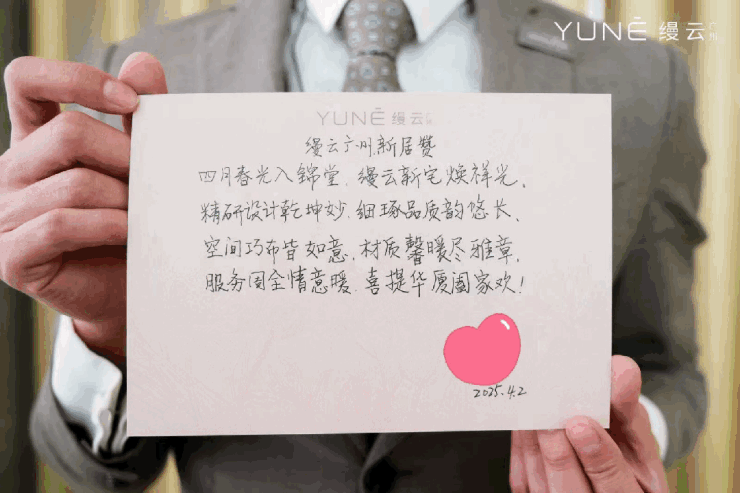 YUNĒ 缦云 广州
YUNĒ 缦云
缦云广州新居赞
四月春光入锦堂,缦云新宅焕祥光。
精研设计乾坤妙,细琢品质韵悠长。
空间巧布皆如意,材质馨暖尽雅章。
服务周全情意暖,喜提华厦阖家欢!
2025.4.2